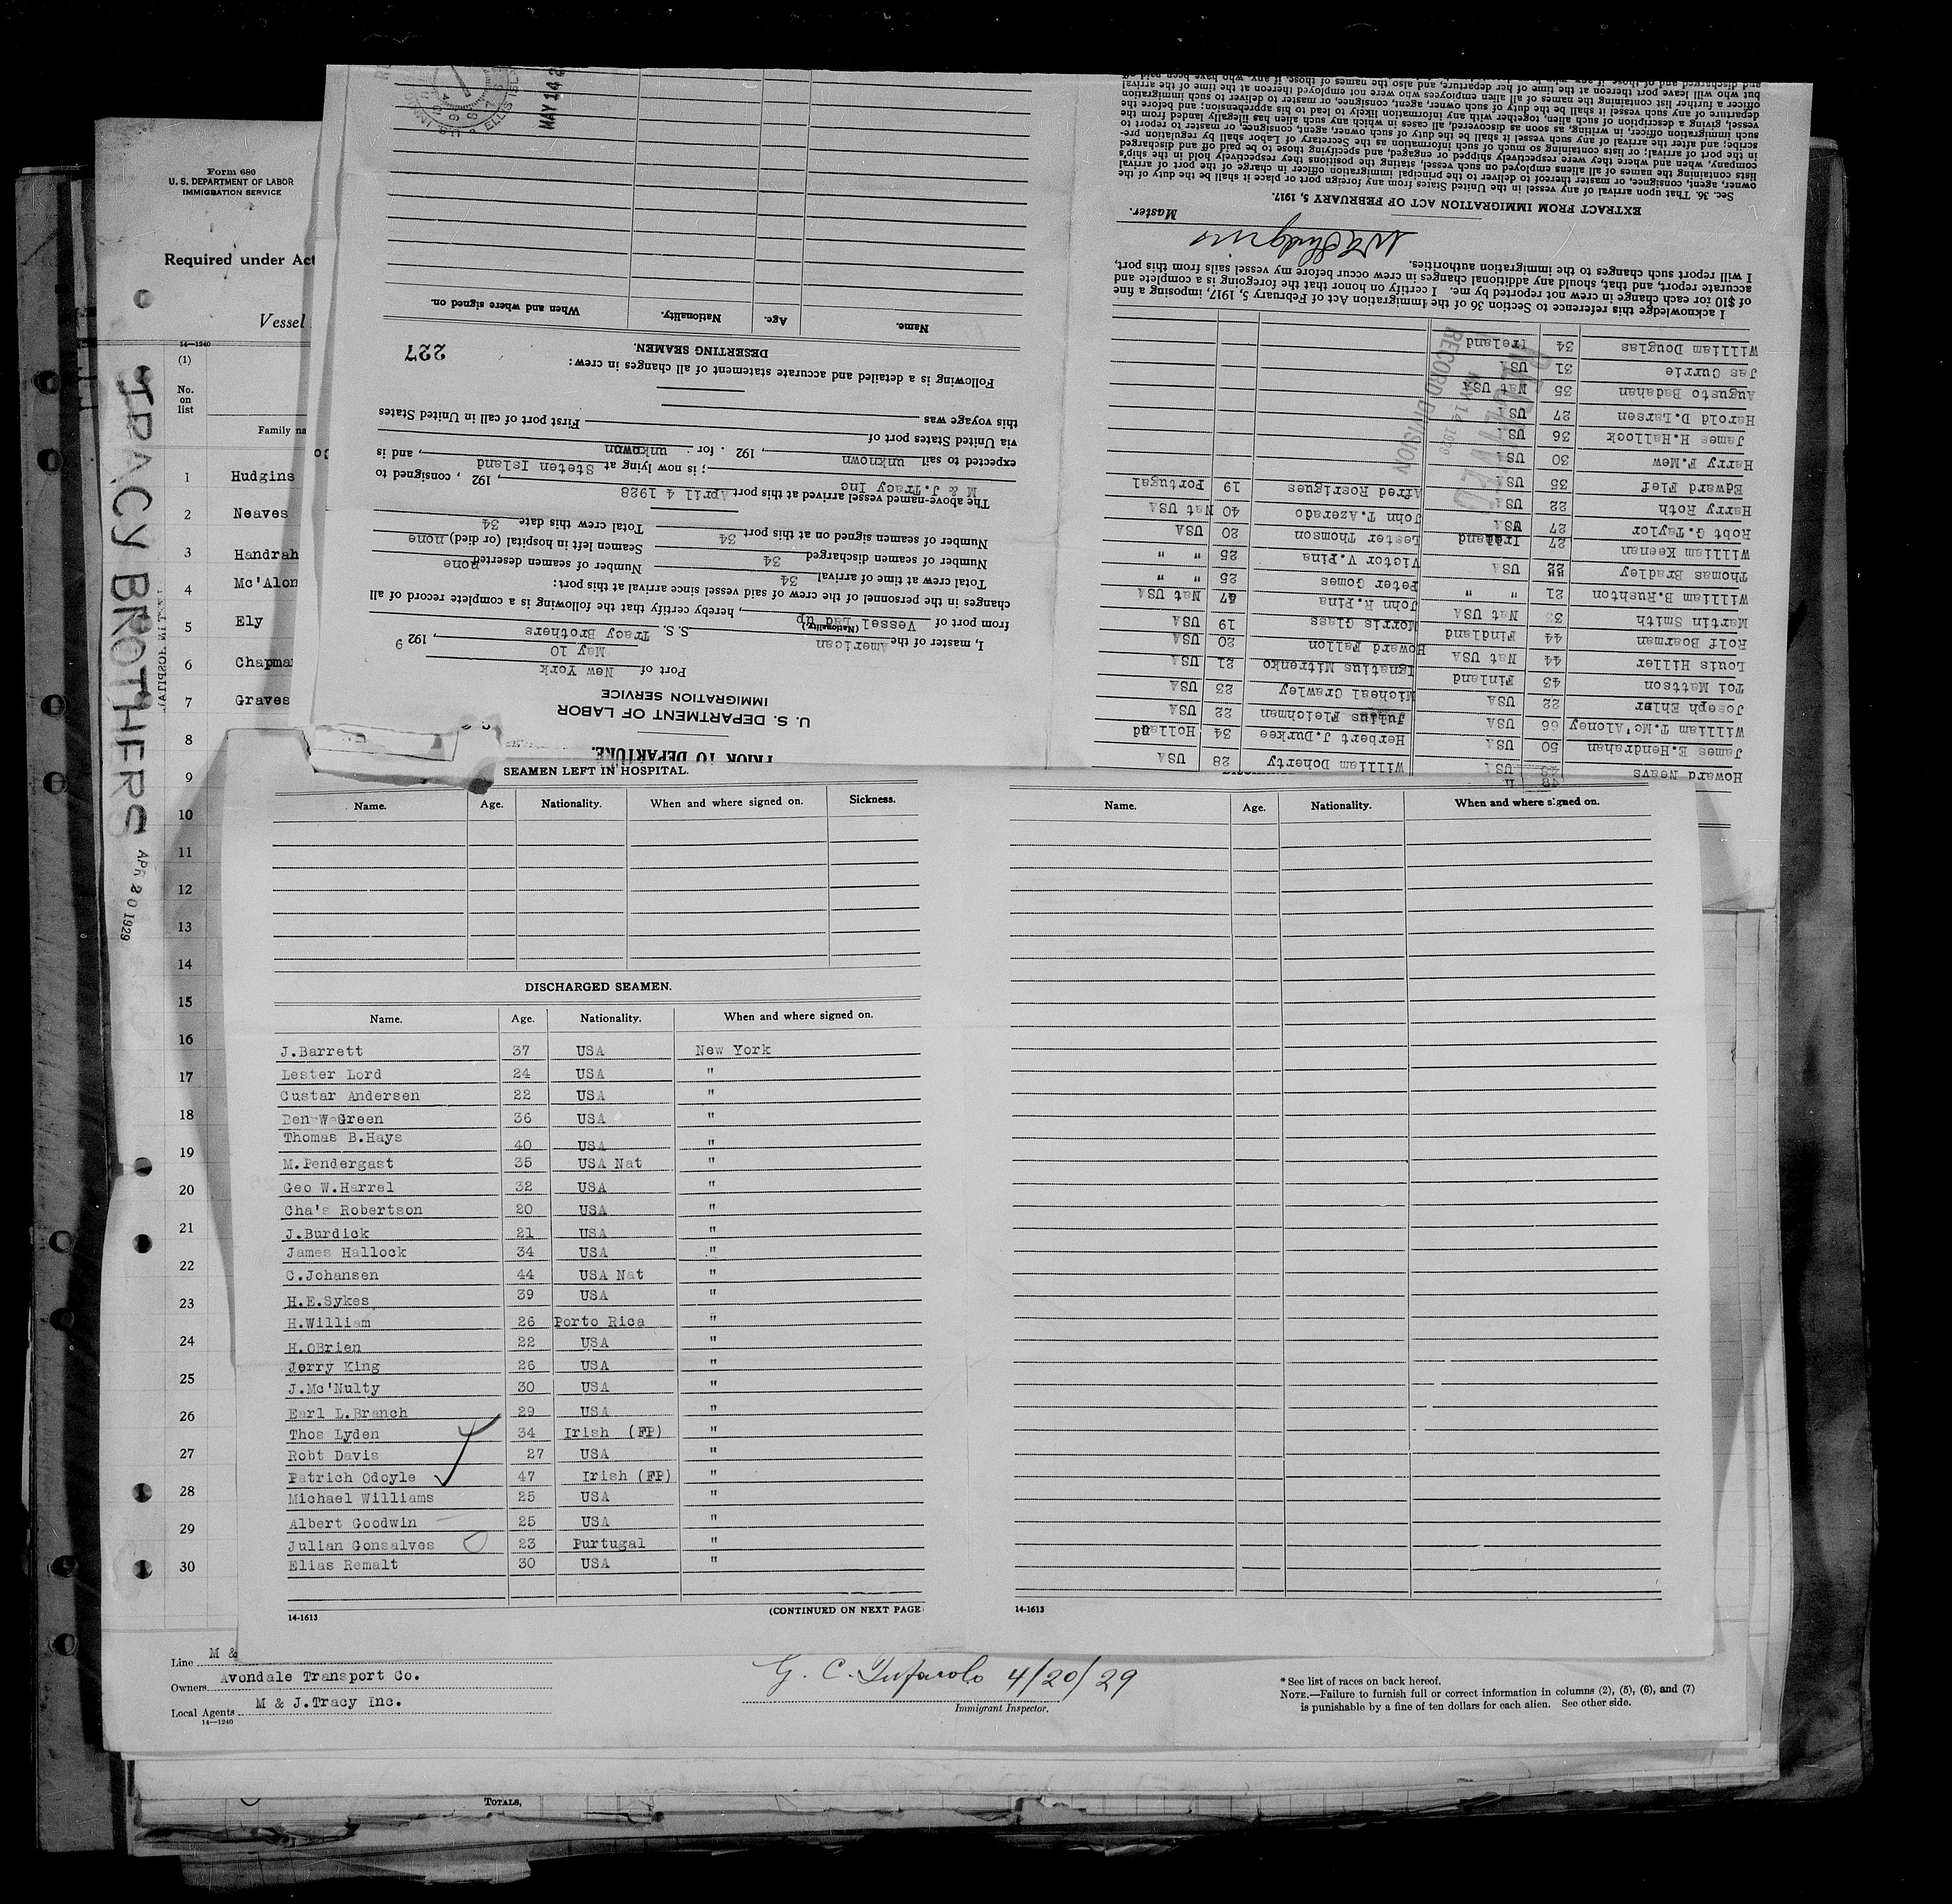 Form 680
U. S. DEPARTMENT OF LABOR
IMMIGRATION SERVICE
Required under Act
Vessel
14—1240
(1)
No.
on
list
Family na
1 Hudgins
2 Neaves
3 Handrah
4 Mc'Alon
5 Ely
6 Chapma
7 Graves
8
9
10
11
12
13
14
15
16
17
18
19
20
21
22
23
24
25
26
27
28
29
30
TRACY BROTHERS APR 20 1929
PRIOR TO DEPARTURE.
U. S. DEPARTMENT OF LABOR
IMMIGRATION SERVICE
Port of New York
May 10, 192 9
I, master of the American S. S. Tracy Brothers
(Nationality)
from port of Vessel Lad up, hereby certify that the following is a complete record of all
changes in the personnel of the crew of said vessel since arrival at this port:
Total crew at time of arrival 34 Number of seamen deserted none
Number of seamen discharged 34 Seamen left in hospital (or died) none
Number of seamen signed on at this port 34 Total crew this date 34
The above-named vessel arrived at this port April 4 1928, 192 , consigned to
M & J. Tracy Inc ; is now lying at Steten Island, and is
expected to sail unknown, 192 . for unknown
via United States port of
this voyage was First port of call in United States
Following is a detailed and accurate statement of all changes in crew:
DESERTING SEAMEN. 227
Name. Age. Nationality. When and where signed on.
MAY 14 2
ELLIS ISL
Howard Neavs 48 USA William Doherty 28 USA
James E.Hendrahan 50 USA Herbert J.Durkee 34 Holland
William T.Mc'Aloney 56 USA Julius Fleichman 22 USA
Joseph Ehler 22 USA Micheal Crawley 23 USA
Toi Mattson 43 Finland Ignatius Mitrenko 21 USA
Louis Hiller 44 Nat USA Howard Fallon 20 USA
Rolf Boarman 44 Findland Morris Glass 19 USA
Martin Smith 33 Nat USA John R.Pina 47 Nat USA
William B.Rushton 21 " " Peter Gomes 25 " "
Thomas Bradley 22 USA Victor V.Pina 25 " "
William Keenan 27 Lester Thomson 20 USA
Robt G.Taylor 27 USA John T.Azerado 40 Nat USA
Harry Roth 22 USA Alfred Rosrigues 19 Portugal
Edward Fief 35 USA
Harry F.Mew 30 USA
James H.Hallock 36 USA
Harold D.Larsen 27 USA
Augusto Badahan 35 Nat USA
Jas Currie 31 USA
William Douglas 34 Ireland
RECEIVED
MAY 14 1929
RECORD DIVISION
I acknowledge this reference to Section 36 of the Immigration Act of February 5, 1917, imposing a fine
of $10 for each change in crew not reported by me. I certify on honor that the foregoing is a complete and
accurate report, and that, should any additional changes in crew occur before my vessel sails from this port,
I will report such changes to the immigration authorities.
Hudgins
Master.
EXTRACT FROM IMMIGRATION ACT OF FEBRUARY 5, 1917.
Sec. 36. That upon arrival of any vessel in the United States from any foreign port or place it shall be the duty of the
owner, agent, consignee, or master thereof to deliver to the principal immigration officer in charge of the port of arrival
lists containing the names of all aliens employed on such vessel, stating the positions they respectively hold in the ship's
company, when and where they were respectively shipped or engaged, and specifying those to be paid off and discharged
in the port of arrival; or lists containing so much of such information as the Secretary of Labor shall by regulation pre-
scribe; and after the arrival of any such vessel it shall be the duty of such owner, agent, consignee, or master to report to
such immigration officer, in writing, as soon as discovered, all cases in which any such alien has illegally landed from the
vessel, giving a description of such alien, together with any information likely to lead to his apprehension; and before the
departure of any such vessel it shall be the duty of such owner, agent, consignee, or master to deliver to such immigration
officer a further list containing the names of all alien employees who were not employed thereon at the time of the arrival
but who will leave port thereon at the time of her departure, and also the names of those, if any, who have been paid off
SEAMEN LEFT IN HOSPITAL.
Name. Age. Nationality. When and where signed on. Sickness.
DISCHARGED SEAMEN.
Name. Age. Nationality. When and where signed on.
J.Barrett 37 USA New York
Lester Lord 24 USA "
Custar Andersen 22 USA "
Ben W Green 36 USA "
Thomas B.Hays 40 USA "
M.Pendergast 35 USA Nat "
Geo W.Harrel 32 USA "
Cha's Robertson 20 USA "
J.Burdick 21 USA "
James Hallock 34 USA "
C.Johansen 44 USA Nat "
H.E.Sykes 39 USA "
H.William 26 Porto Rica "
H.OBrien 22 USA "
Jerry King 26 USA "
J.Mc'Nulty 30 USA "
Earl L.Branch 29 USA "
Thos Lyden 34 Irish (FP) "
Robt Davis 27 USA "
Patrich Odoyle 47 Irish (FP) "
Michael Williams 25 USA "
Albert Goodwin 25 USA "
Julian Gonsalves 23 Purtugal "
Elias Remalt 30 USA "
14-1613 (CONTINUED ON NEXT PAGE
Name. Age. Nationality. When and where signed on.
14-1613
Line M &
Owners Avondale Transport Co.
Local Agents M & J.Tracy Inc.
14—1240
G. C. Tufarolo 4/20/29
Immigrant Inspector.
* See list of races on back hereof.
NOTE.—Failure to furnish full or correct information in columns (2), (5), (6), and (7)
is punishable by a fine of ten dollars for each alien. See other side.
TOTALS,